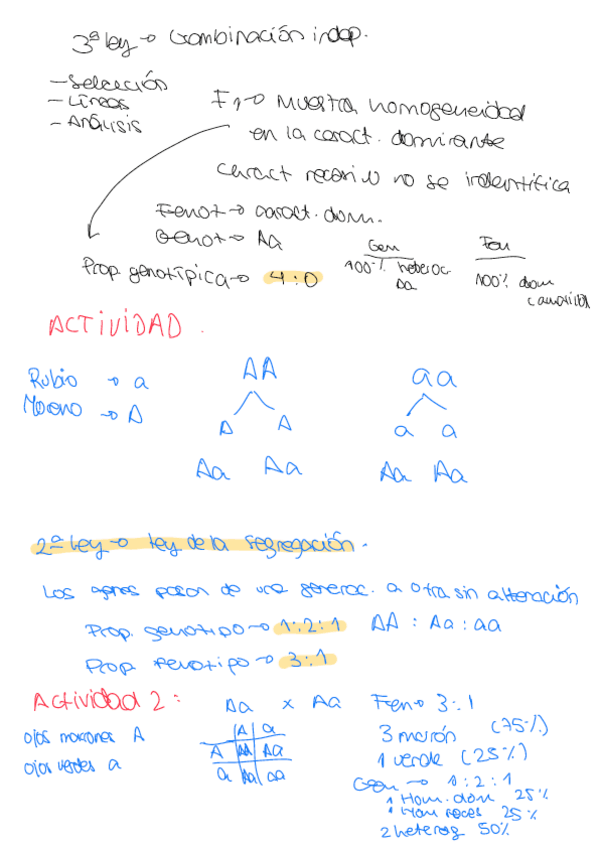 3ª ley → Combinación indep.
- Selección
- Líneas
- Análisis
F1 → Muestra homogeneidad
en la caract. dominante
Caract recesivo no se indentifica
Fenot → caract. dom.
Genot → Aa
Prop. genotípica → 4:0
Gen
100% heteroc
Aa
Fen
100% dom
ACTIVIDAD.
Rubio → a
Moreno → A
AA
A A
Aa Aa
aa
a a
Aa Aa
2ª Ley → ley de la segregación.
Los genes pasan de una generac. a otra sin alteración
Prop. genotipo → 1:2:1 AA : Aa : aa
Prop. fenotipo → 3:1
Actividad 2:
ojos marrones A
ojos verdes a
Aa x Aa
A a
A AA Aa
a Aa aa
Fen → 3:1
3 marrón (75%)
1 verde (25%)
Gen → 1:2:1
1 Hom. dom 25%
1 Hom reces 25%
2 heterog 50%